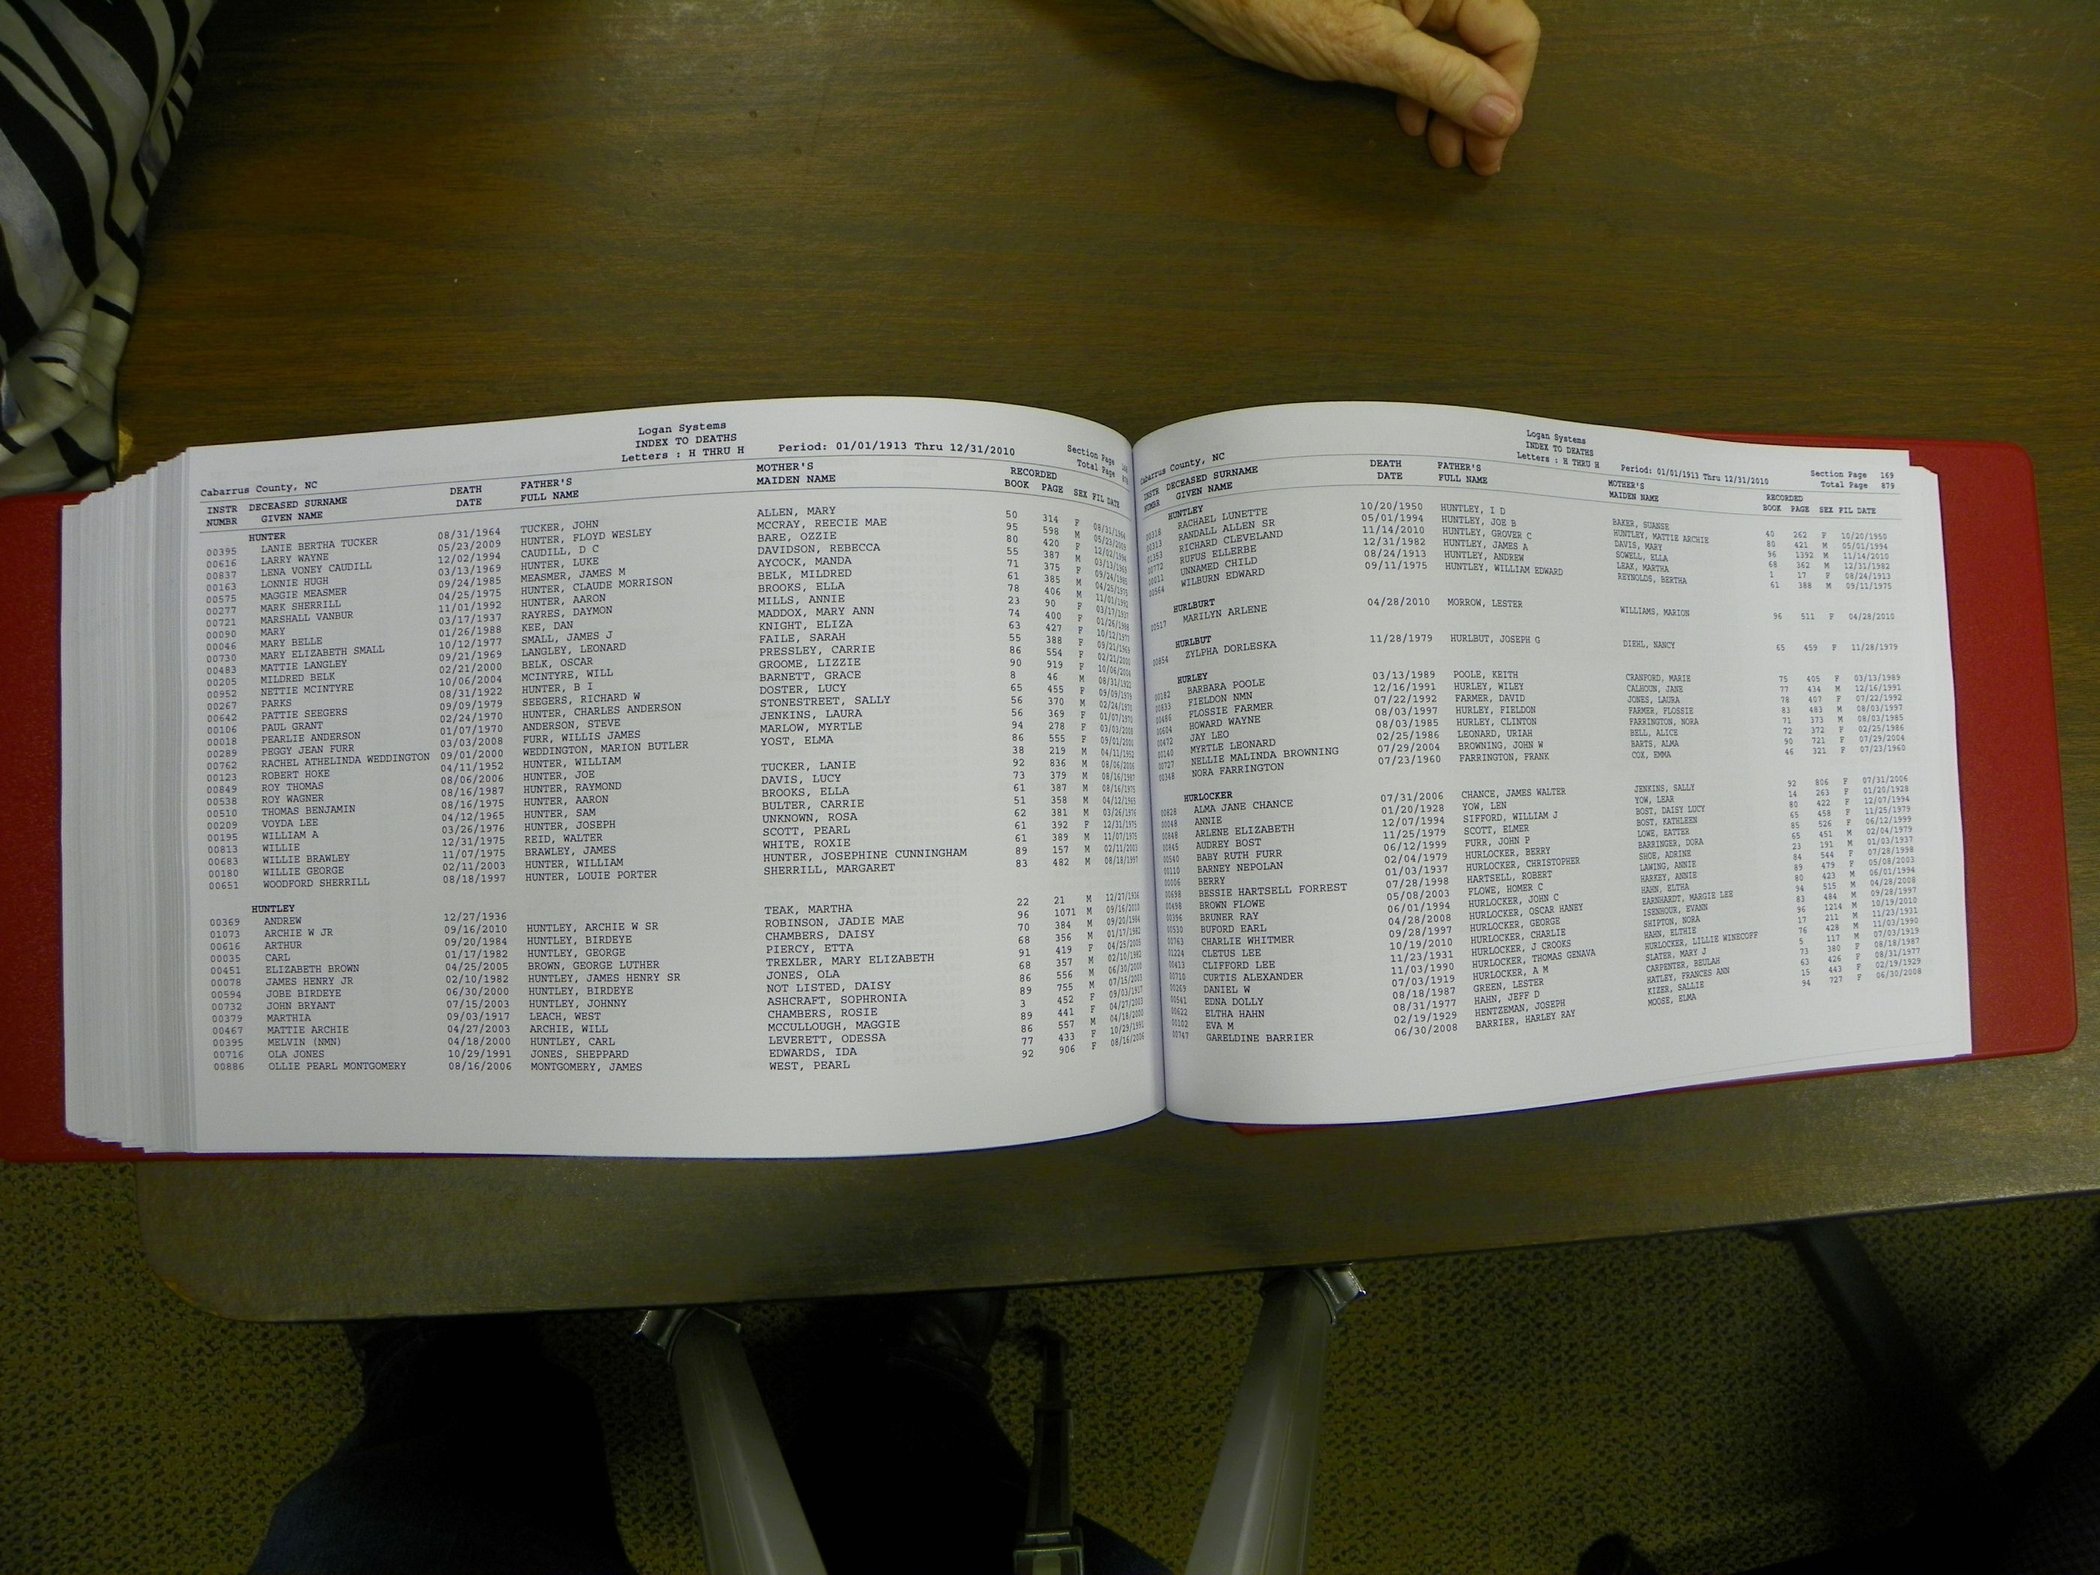 Logan Systems
INDEX TO DEATHS
Letters : H THRU H Period: 01/01/1913 Thru 12/31/2010
Section Page 168
Total Page 878
Cabarrus County, NC
INSTR DECEASED SURNAME DEATH FATHER'S MOTHER'S RECORDED
NUMBR GIVEN NAME DATE FULL NAME MAIDEN NAME BOOK PAGE SEX FIL DATE
HUNTER
00395 LANIE BERTHA TUCKER 08/31/1964 TUCKER, JOHN ALLEN, MARY 50 314 F 08/31/1964
00616 LARRY WAYNE 05/23/2009 HUNTER, FLOYD WESLEY MCCRAY, REECIE MAE 95 598 M 05/23/2009
00837 LENA VONEY CAUDILL 12/02/1994 CAUDILL, D C BARE, OZZIE 80 420 F 12/02/1994
00163 LONNIE HUGH 03/13/1969 HUNTER, LUKE DAVIDSON, REBECCA 55 387 M 03/13/1969
00575 MAGGIE MEASMER 09/24/1985 MEASMER, JAMES M AYCOCK, MANDA 71 375 F 09/24/1985
00277 MARK SHERRILL 04/25/1975 HUNTER, CLAUDE MORRISON BELK, MILDRED 61 385 M 04/25/1975
00721 MARSHALL VANBUR 11/01/1992 HUNTER, AARON BROOKS, ELLA 78 406 M 11/01/1992
00090 MARY 03/17/1937 RAYRES, DAYMON MILLS, ANNIE 23 90 F 03/17/1937
00046 MARY BELLE 01/26/1988 KEE, DAN MADDOX, MARY ANN 74 400 F 01/26/1988
00730 MARY ELIZABETH SMALL 10/12/1977 SMALL, JAMES J KNIGHT, ELIZA 63 427 F 10/12/1977
00483 MATTIE LANGLEY 09/21/1969 LANGLEY, LEONARD FAILE, SARAH 55 388 F 09/21/1969
00205 MILDRED BELK 02/21/2000 BELK, OSCAR PRESSLEY, CARRIE 86 554 F 02/21/2000
00952 NETTIE MCINTYRE 10/06/2004 MCINTYRE, WILL GROOME, LIZZIE 90 919 F 10/06/2004
00267 PARKS 08/31/1922 HUNTER, B I BARNETT, GRACE 8 46 M 08/31/1922
00642 PATTIE SEEGERS 09/09/1979 SEEGERS, RICHARD W DOSTER, LUCY 65 455 F 09/09/1979
00106 PAUL GRANT 02/24/1970 HUNTER, CHARLES ANDERSON STONESTREET, SALLY 56 370 M 02/24/1970
00018 PEARLIE ANDERSON 01/07/1970 ANDERSON, STEVE JENKINS, LAURA 56 369 F 01/07/1970
00289 PEGGY JEAN FURR 03/03/2008 FURR, WILLIS JAMES MARLOW, MYRTLE 94 278 F 03/03/2008
00762 RACHEL ATHELINDA WEDDINGTON 09/01/2000 WEDDINGTON, MARION BUTLER YOST, ELMA 86 555 F 09/01/2000
00123 ROBERT HOKE 04/11/1952 HUNTER, WILLIAM 38 219 M 04/11/1952
00849 ROY THOMAS 08/06/2006 HUNTER, JOE TUCKER, LANIE 92 836 M 08/06/2006
00538 ROY WAGNER 08/16/1987 HUNTER, RAYMOND DAVIS, LUCY 73 379 M 08/16/1987
00510 THOMAS BENJAMIN 08/16/1975 HUNTER, AARON BROOKS, ELLA 61 387 M 08/16/1975
00209 VOYDA LEE 04/12/1965 HUNTER, SAM BULTER, CARRIE 51 358 M 04/12/1965
00195 WILLIAM A 03/26/1976 HUNTER, JOSEPH UNKNOWN, ROSA 62 381 M 03/26/1976
00813 WILLIE 12/31/1975 REID, WALTER SCOTT, PEARL 61 392 F 12/31/1975
00683 WILLIE BRAWLEY 11/07/1975 BRAWLEY, JAMES WHITE, ROXIE 61 389 M 11/07/1975
00180 WILLIE GEORGE 02/11/2003 HUNTER, WILLIAM HUNTER, JOSEPHINE CUNNINGHAM 89 157 M 02/11/2003
00651 WOODFORD SHERRILL 08/18/1997 HUNTER, LOUIE PORTER SHERRILL, MARGARET 83 482 M 08/18/1997
HUNTLEY
00369 ANDREW 12/27/1936 TEAK, MARTHA 22 21 M 12/27/1936
01073 ARCHIE W JR 09/16/2010 HUNTLEY, ARCHIE W SR ROBINSON, JADIE MAE 96 1071 M 09/16/2010
00616 ARTHUR 09/20/1984 HUNTLEY, BIRDEYE CHAMBERS, DAISY 70 384 M 09/20/1984
00035 CARL 01/17/1982 HUNTLEY, GEORGE PIERCY, ETTA 68 356 M 01/17/1982
00451 ELIZABETH BROWN 04/25/2005 BROWN, GEORGE LUTHER TREXLER, MARY ELIZABETH 91 419 F 04/25/2005
00078 JAMES HENRY JR 02/10/1982 HUNTLEY, JAMES HENRY SR JONES, OLA 68 357 M 02/10/1982
00594 JOBE BIRDEYE 06/30/2000 HUNTLEY, BIRDEYE NOT LISTED, DAISY 86 556 M 06/30/2000
00732 JOHN BRYANT 07/15/2003 HUNTLEY, JOHNNY ASHCRAFT, SOPHRONIA 89 755 M 07/15/2003
00379 MARTHIA 09/03/1917 LEACH, WEST CHAMBERS, ROSIE 3 452 F 09/03/1917
00467 MATTIE ARCHIE 04/27/2003 ARCHIE, WILL MCCULLOUGH, MAGGIE 89 441 F 04/27/2003
00395 MELVIN (NMN) 04/18/2000 HUNTLEY, CARL LEVERETT, ODESSA 86 557 M 04/18/2000
00716 OLA JONES 10/29/1991 JONES, SHEPPARD EDWARDS, IDA 77 433 F 10/29/1991
00886 OLLIE PEARL MONTGOMERY 08/16/2006 MONTGOMERY, JAMES WEST, PEARL 92 906 F 08/16/2006
Logan Systems
INDEX TO DEATHS
Letters : H THRU H Period: 01/01/1913 Thru 12/31/2010
Section Page 169
Total Page 879
Cabarrus County, NC
INSTR DECEASED SURNAME DEATH FATHER'S MOTHER'S RECORDED
NUMBR GIVEN NAME DATE FULL NAME MAIDEN NAME BOOK PAGE SEX FIL DATE
HUNTLEY
00318 RACHAEL LUNETTE 10/20/1950 HUNTLEY, I D BAKER, SUANSE 40 262 F 10/20/1950
00313 RANDALL ALLEN SR 05/01/1994 HUNTLEY, JOE B HUNTLEY, MATTIE ARCHIE 80 421 M 05/01/1994
01353 RICHARD CLEVELAND 11/14/2010 HUNTLEY, GROVER C DAVIS, MARY 96 1392 M 11/14/2010
00772 RUFUS ELLERBE 12/31/1982 HUNTLEY, JAMES A SOWELL, ELLA 68 362 M 12/31/1982
00011 UNNAMED CHILD 08/24/1913 HUNTLEY, ANDREW LEAK, MARTHA 1 17 F 08/24/1913
00564 WILBURN EDWARD 09/11/1975 HUNTLEY, WILLIAM EDWARD REYNOLDS, BERTHA 61 388 M 09/11/1975
HURLBURT
00517 MARILYN ARLENE 04/28/2010 MORROW, LESTER WILLIAMS, MARION 96 511 F 04/28/2010
HURLBUT
00854 ZYLPHA DORLESKA 11/28/1979 HURLBUT, JOSEPH G DIEHL, NANCY 65 459 F 11/28/1979
HURLEY
00182 BARBARA POOLE 03/13/1989 POOLE, KEITH CRANFORD, MARIE 75 405 F 03/13/1989
00833 FIELDON NMN 12/16/1991 HURLEY, WILEY CALHOUN, JANE 77 434 M 12/16/1991
00486 FLOSSIE FARMER 07/22/1992 FARMER, DAVID JONES, LAURA 78 407 F 07/22/1992
00604 HOWARD WAYNE 08/03/1997 HURLEY, FIELDON FARMER, FLOSSIE 83 483 M 08/03/1997
00472 JAY LEO 08/03/1985 HURLEY, CLINTON FARRINGTON, NORA 71 373 M 08/03/1985
00140 MYRTLE LEONARD 02/25/1986 LEONARD, URIAH BELL, ALICE 72 372 F 02/25/1986
00727 NELLIE MALINDA BROWNING 07/29/2004 BROWNING, JOHN W BARTS, ALMA 90 721 F 07/29/2004
00348 NORA FARRINGTON 07/23/1960 FARRINGTON, FRANK COX, EMMA 46 321 F 07/23/1960
HURLOCKER
00828 ALMA JANE CHANCE 07/31/2006 CHANCE, JAMES WALTER JENKINS, SALLY 92 806 F 07/31/2006
00048 ANNIE 01/20/1928 YOW, LEN YOW, LEAR 14 263 F 01/20/1928
00848 ARLENE ELIZABETH 12/07/1994 SIFFORD, WILLIAM J BOST, DAISY LUCY 80 422 F 12/07/1994
00845 AUDREY BOST 11/25/1979 SCOTT, ELMER BOST, KATHLEEN 65 458 F 11/25/1979
00540 BABY RUTH FURR 06/12/1999 FURR, JOHN P LOWE, EATTER 85 526 F 06/12/1999
00110 BARNEY NEPOLAN 02/04/1979 HURLOCKER, BERRY BARRINGER, DORA 65 451 M 02/04/1979
00006 BERRY 01/03/1937 HURLOCKER, CHRISTOPHER SHOE, ADRINE 23 191 M 01/03/1937
00698 BESSIE HARTSELL FORREST 07/28/1998 HARTSELL, ROBERT LAWING, ANNIE 84 544 F 07/28/1998
00498 BROWN FLOWE 05/08/2003 FLOWE, HOMER C HARKEY, ANNIE 89 479 F 05/08/2003
00396 BRUNER RAY 06/01/1994 HURLOCKER, JOHN C HAHN, ELTHA 80 423 M 06/01/1994
00530 BUFORD EARL 04/28/2008 HURLOCKER, OSCAR HANEY EARNHARDT, MARGIE LEE 94 515 M 04/28/2008
00763 CHARLIE WHITMER 09/28/1997 HURLOCKER, GEORGE ISENHOUR, EVANN 83 484 M 09/28/1997
01224 CLETUS LEE 10/19/2010 HURLOCKER, CHARLIE SHIPTON, NORA 96 1214 M 10/19/2010
00413 CLIFFORD LEE 11/23/1931 HURLOCKER, J CROOKS HAHN, ELTHIE 17 211 M 11/23/1931
00710 CURTIS ALEXANDER 11/03/1990 HURLOCKER, THOMAS GENAVA HURLOCKER, LILLIE WINECOFF 76 428 M 11/03/1990
00269 DANIEL W 07/03/1919 HURLOCKER, A M SLATER, MARY J 5 117 M 07/03/1919
00541 EDNA DOLLY 08/18/1987 GREEN, LESTER CARPENTER, BEULAH 73 380 F 08/18/1987
00622 ELTHA HAHN 08/31/1977 HAHN, JEFF D HATLEY, FRANCES ANN 63 426 F 08/31/1977
00102 EVA M 02/19/1929 HENTZEMAN, JOSEPH KIZER, SALLIE 15 443 F 02/19/1929
00747 GARELDINE BARRIER 06/30/2008 BARRIER, HARLEY RAY MOOSE, ELMA 94 727 F 06/30/2008